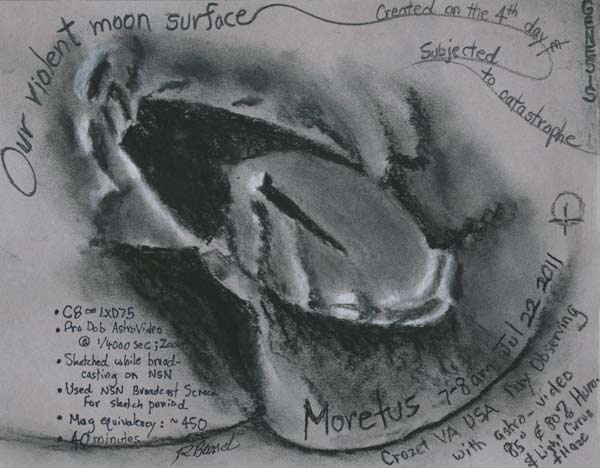 Our violent moon surface
Created on the 4th day
Subjected
to catastrophe
• C8 on LXD75
• Pro Dob AstroVideo
@ 1/4000 sec; Zoom
• Sketched while broad-
casting on NSN
• Used NSN Broadcast Screen
For sketch period.
• Mag equivalency: ~450
• 40 minutes
Moretus
7-8am Jul 22 2011
Crozet VA USA Day Observing
with astro-video
85° & 80% Hum-
& Light Cirrus
+ Haze